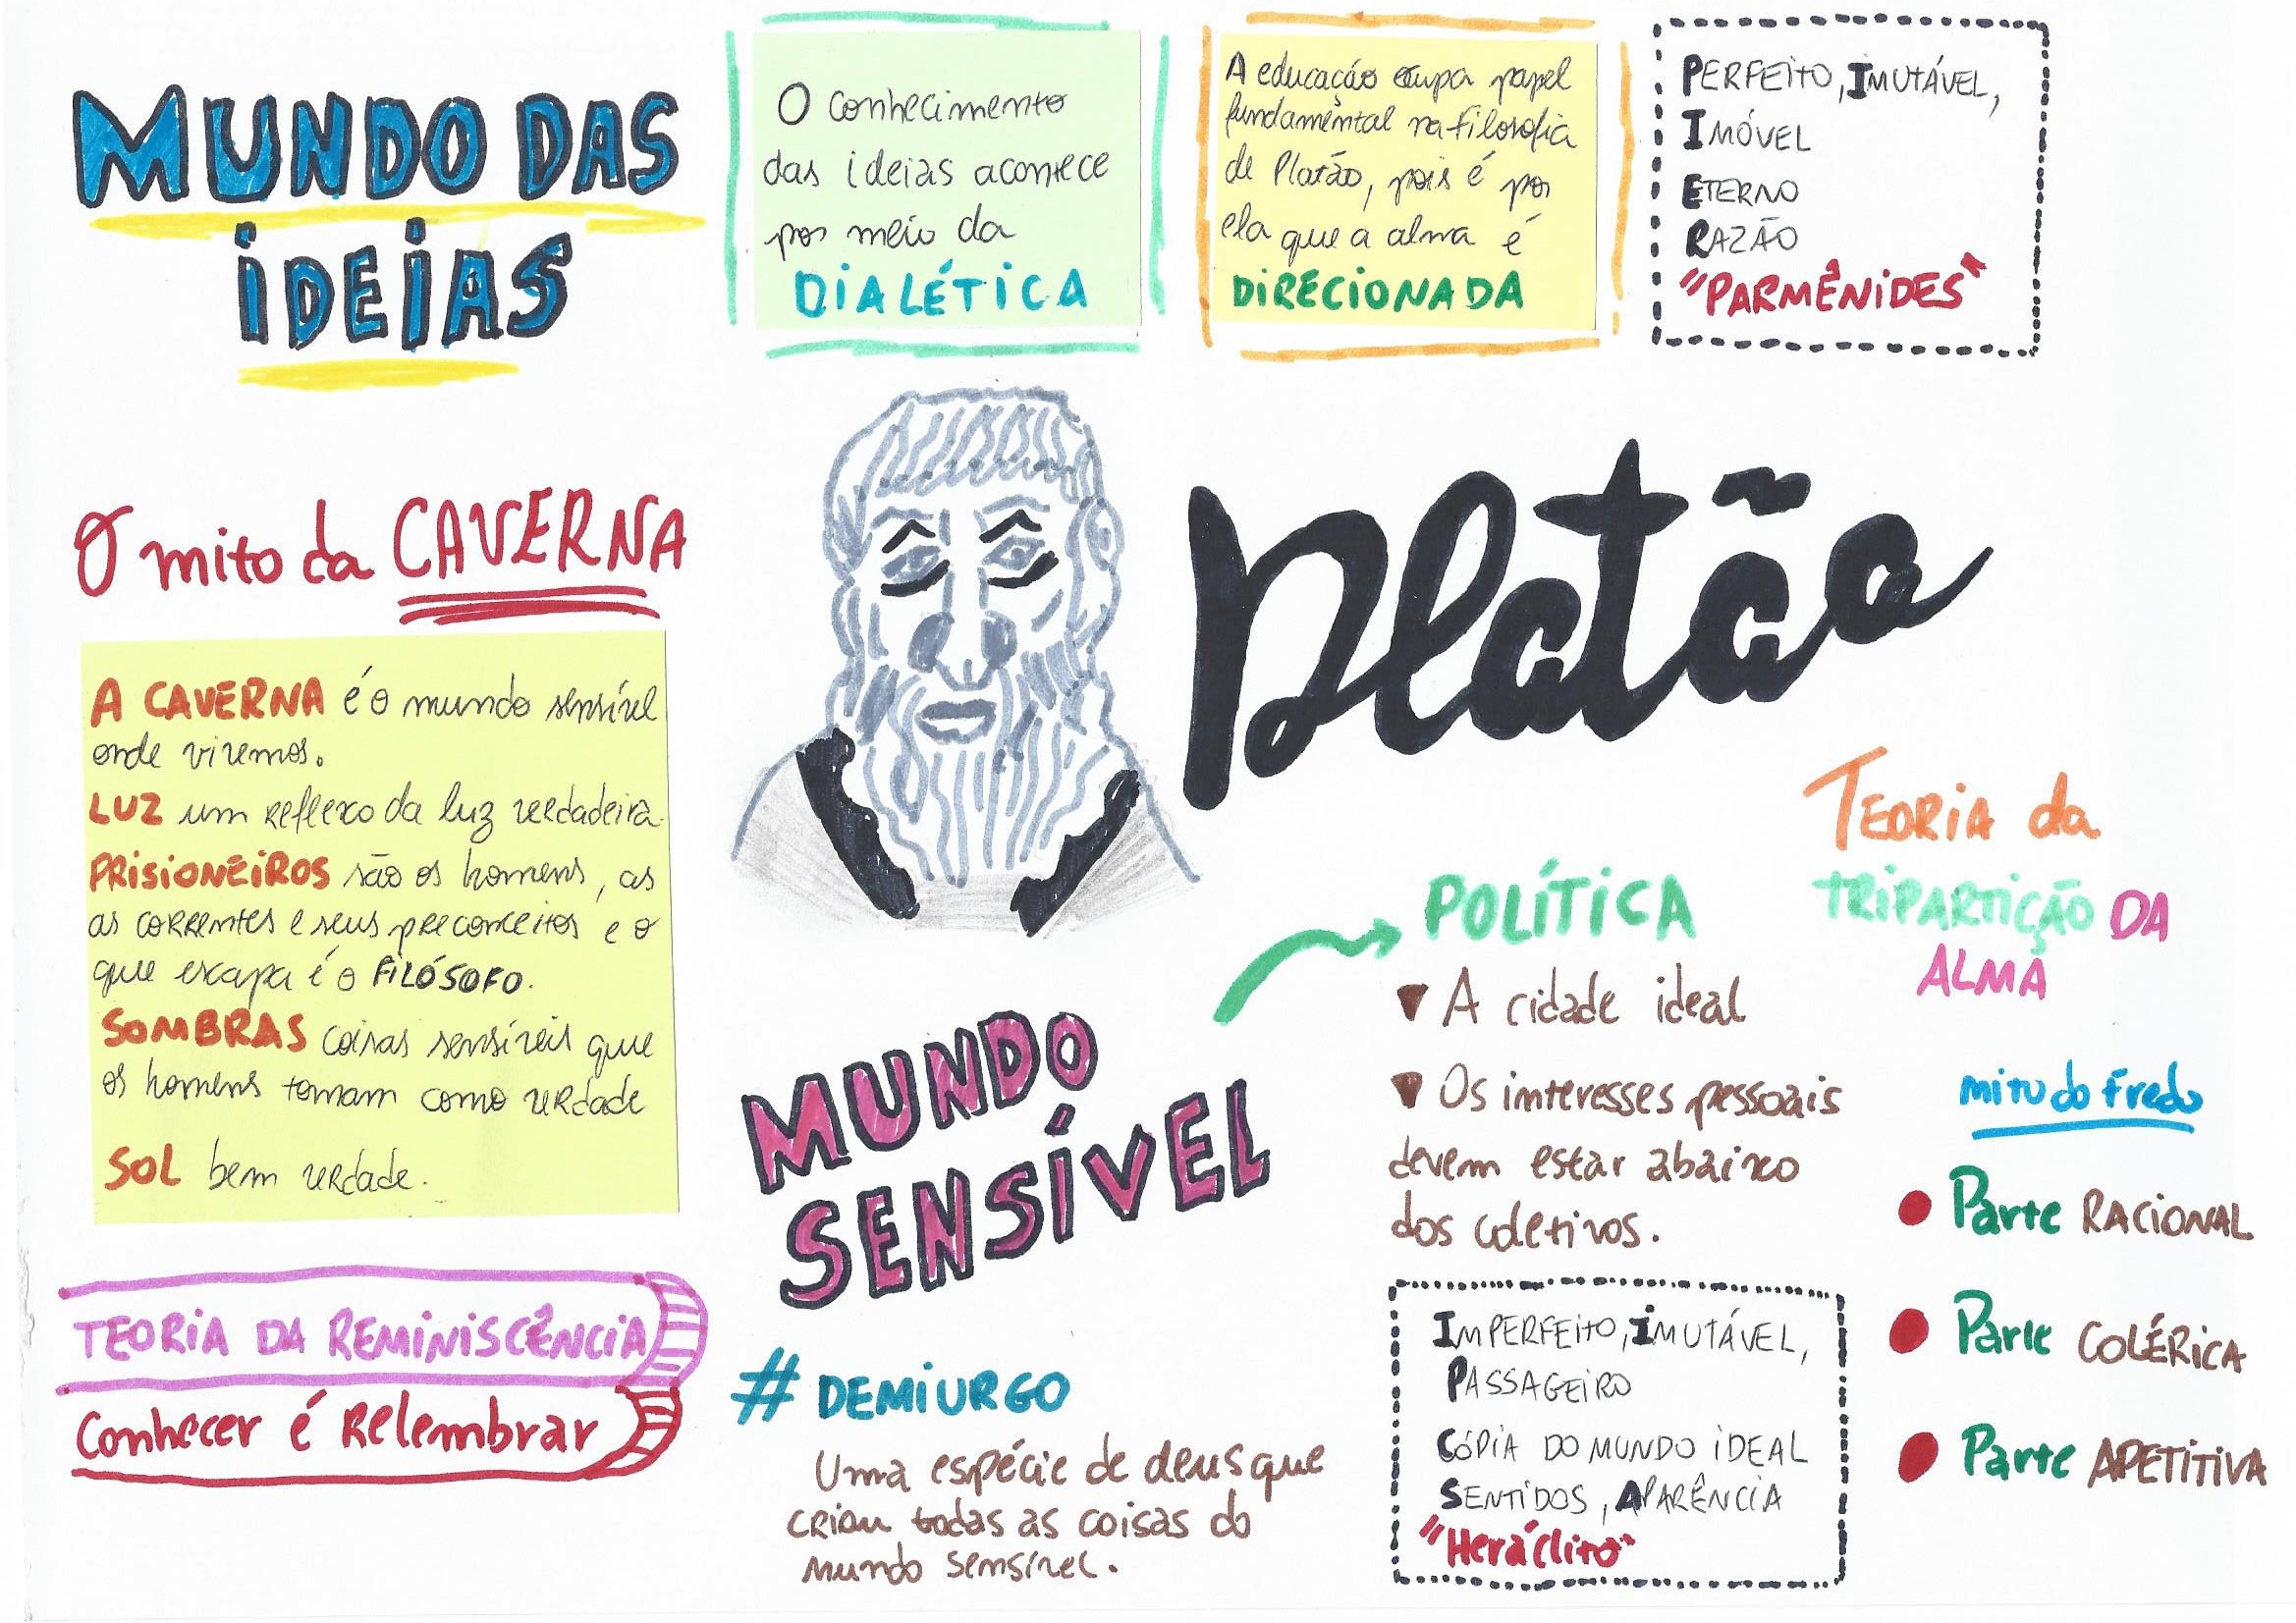 MUNDO DAS
IDEIAS
O conhecimento
das ideias acontece
por meio da
DIALÉTICA
A educação ocupa papel
fundamental na filosofia
de Platão, pois é por
ela que a alma é
DIRECIONADA
PERFEITO, IMUTÁVEL,
IMÓVEL
ETERNO
RAZÃO
"PARMÊNIDES"
O mito da CAVERNA
A CAVERNA é o mundo sensível
onde vivemos.
LUZ um reflexo da luz verdadeira.
PRISIONEIROS são os homens, as
as correntes e seus preconceitos e o
que escapa é o FILÓSOFO.
SOMBRAS coisas sensíveis que
os homens tomam como verdade
SOL bem verdade.
TEORIA DA REMINISCÊNCIA
Conhecer é Relembrar
Platão
MUNDO
SENSÍVEL
# DEMIURGO
Uma espécie de deus que
criou todas as coisas do
mundo sensível.
POLÍTICA
A cidade ideal
Os interesses pessoais
devem estar abaixo
dos coletivos.
IMPERFEITO, IMUTÁVEL,
PASSAGEIRO
CÓPIA DO MUNDO IDEAL
SENTIDOS, APARÊNCIA
"Heráclito"
TEORIA da
TRIPARTIÇÃO DA
ALMA
mitu do Fredo
Parte RACIONAL
Parte COLÉRICA
Parte APETITIVA